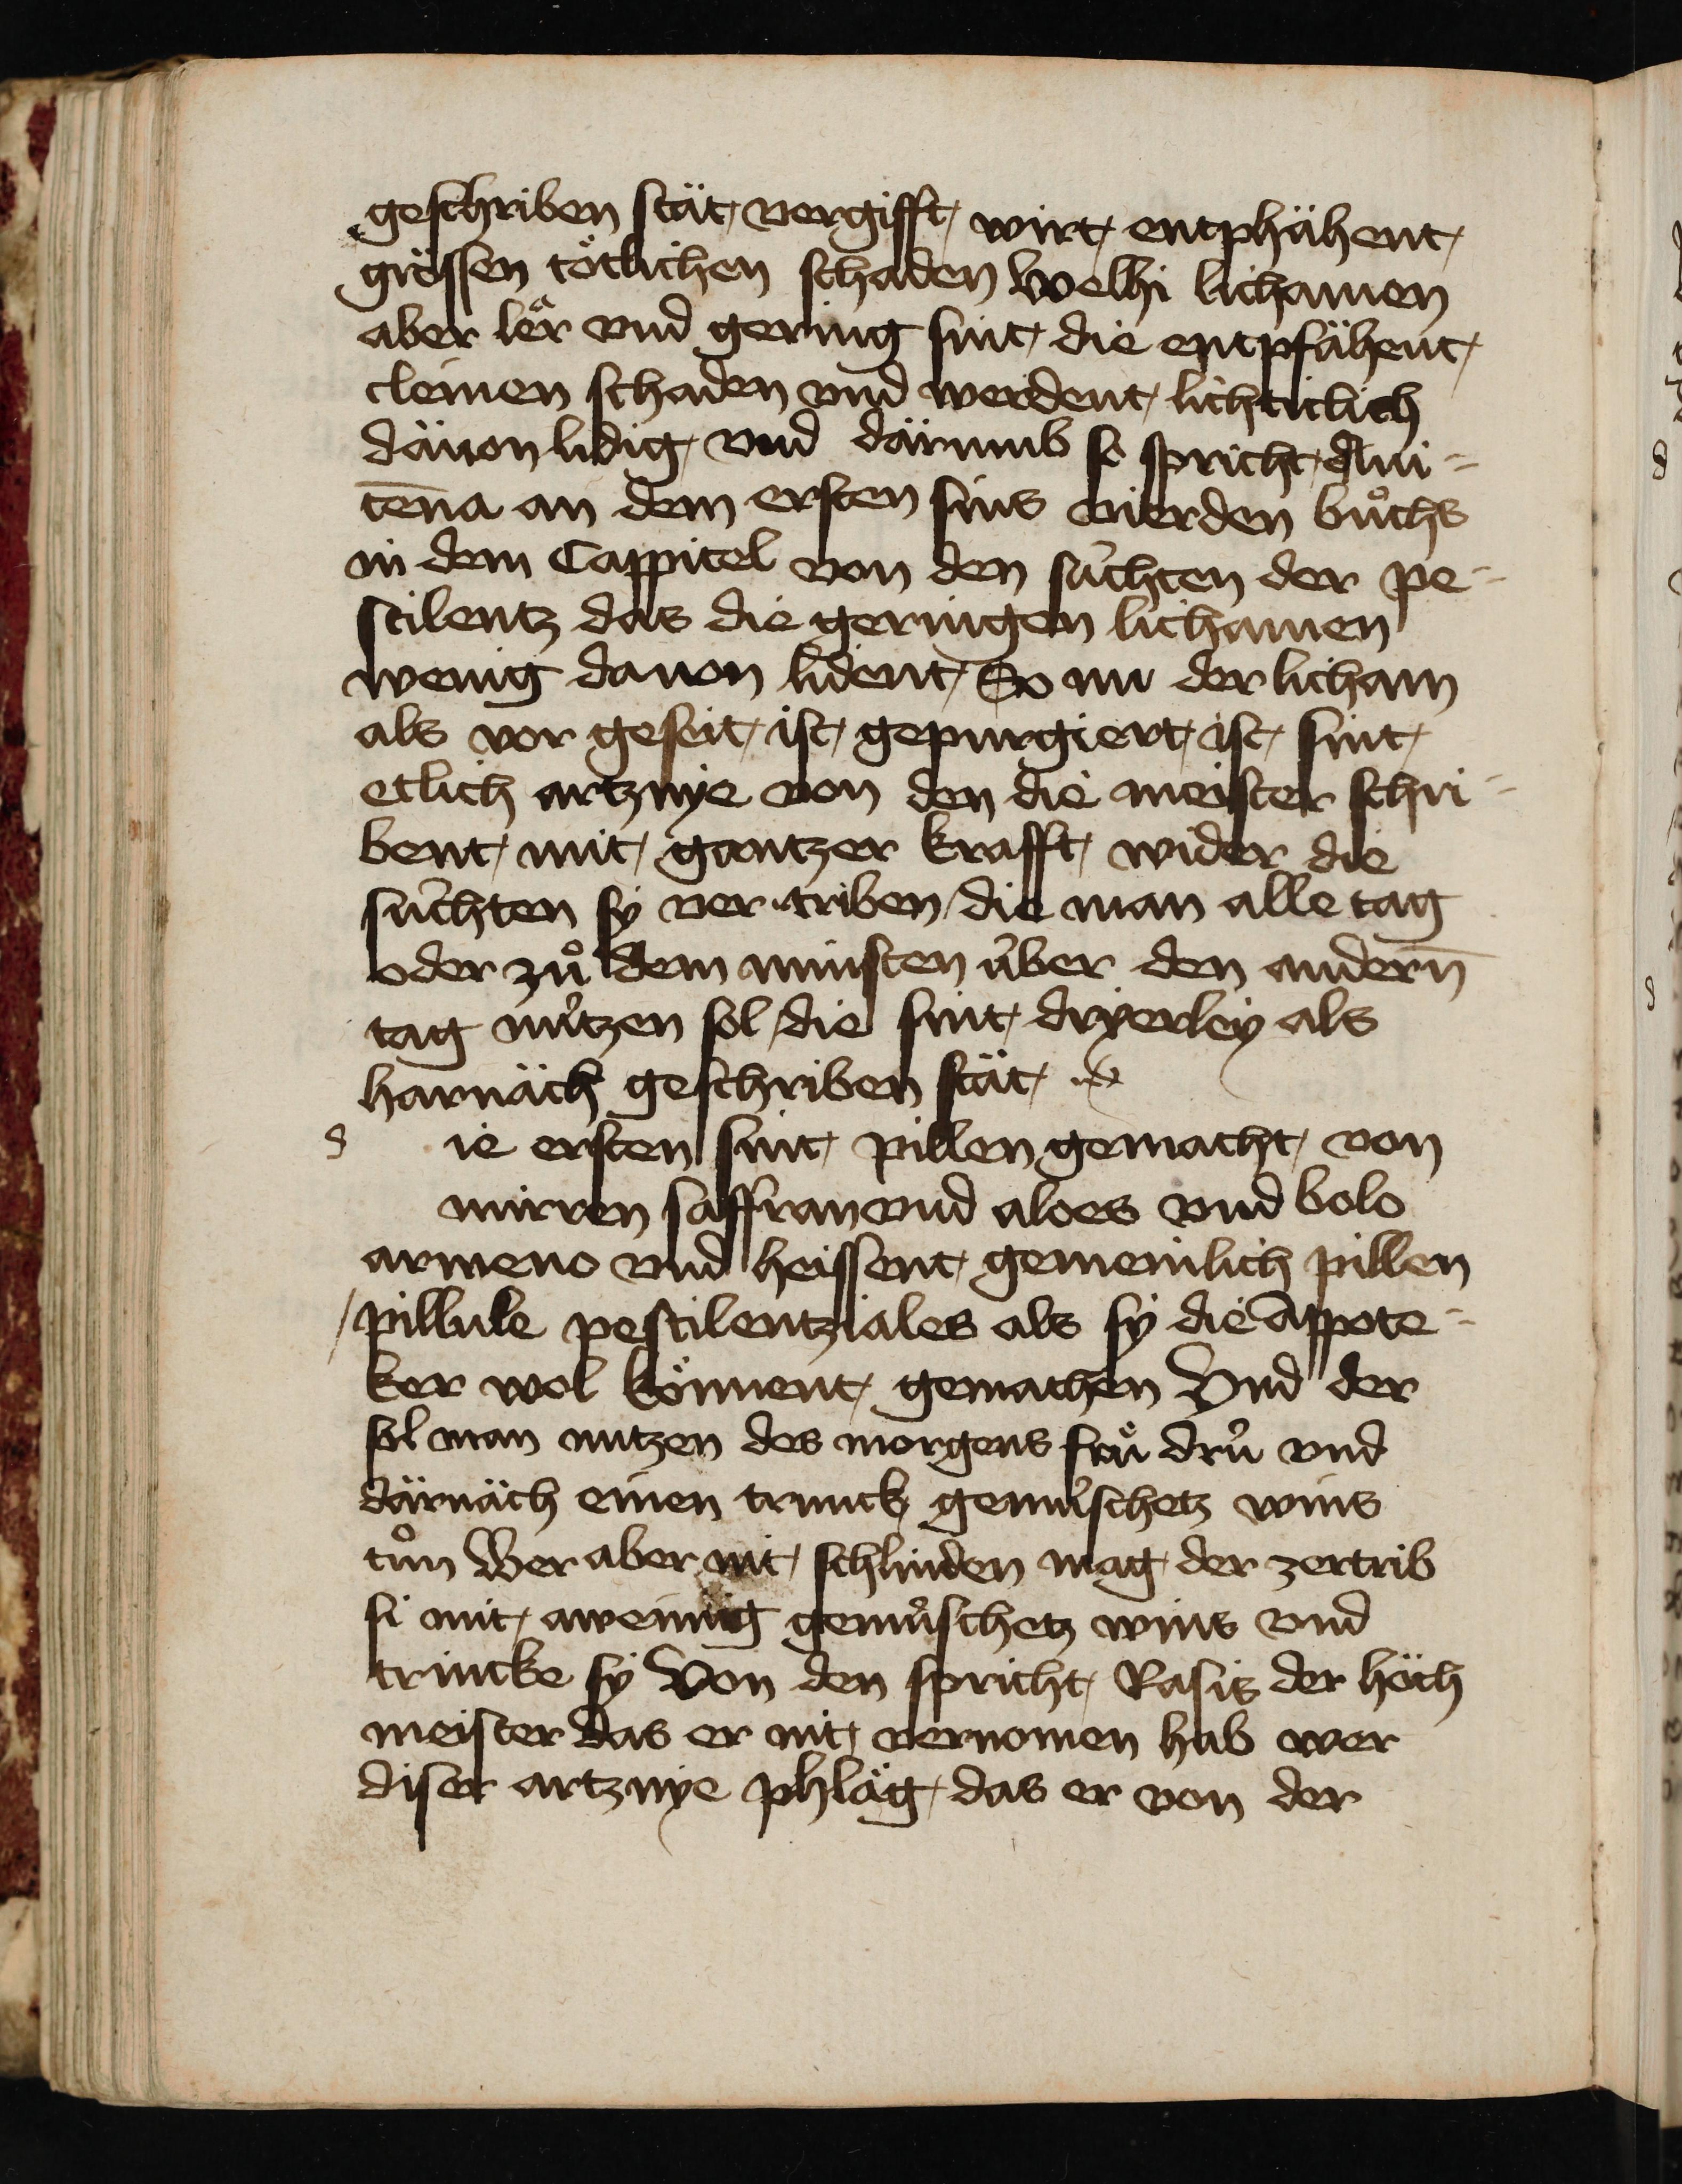 geschriben stät vergifft wirt entphähent
grössen tötlichen schaden Welhi lichamen
aber lër vnd gering sint die entpfähent
cleinen schaden vnd werdent lichticlich
däuon lidig vnd därumb so spricht Aui=
cēna an dem ersten sins vierden bůchs
in dem Cappitel von den sůchten der pe=
stilentz das die geringen lichamen
wenig dauon lident So nu der licham
als vor geseit ist gepurgiert ist sint
etlich artznye von den die meister schri=
bent mit gantzer krafft wider die
sůchten sy ver triben die man alle tag
oder zů dem minsten über den andern̄
tag nützen sol die sint dryerley als
harnäch geschriben stät
d ie ersten sint pillen gemacht von
mirren saffran vnd aloes vnd bolo
armeno vnd heissent gemeinlich pillen
/ pillule pestilentziales als sy die appote=
ker wol könnent gemachen Vnd der
sol man nutzen des morgens frü drü vnd
därnäch einen trunck gemüschetz wins
tůn Wer aber nit schlinden mag der zertrib
si mit awennig gemüschetz wins vnd
trincke sy Von den spricht Rasis der höch
meister das er nit vernomen hab wer
diser artznye phläg das er von der